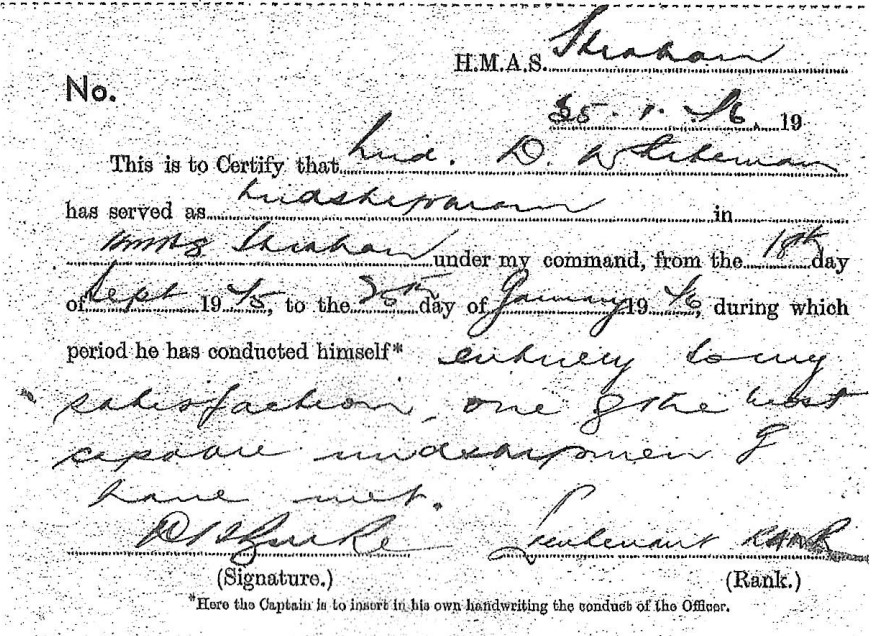 H.M.A.S. Strahan
No.
25 . 1 . 46. 19
This is to Certify that Mid. D. Whiteman
has served as Midshipman in
HMAS Strahan under my command, from the 18th day
of Sept 19 45, to the 25th day of January 19 46, during which
period he has conducted himself* entirely to my
satisfaction, one of the most
capable midshipmen I
have met.
Lieutenant RANR
(Signature.) (Rank.)
*Here the Captain is to insert in his own handwriting the conduct of the Officer.